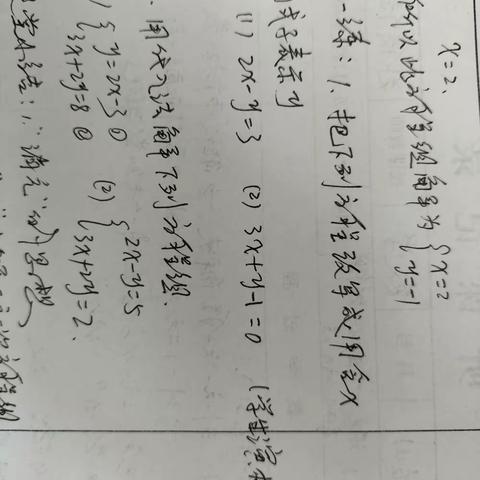 x=2.
所以此方程组解为 { x=2 y=-1
一练：1. 把下列方程改写成用含x
式子表示y
(1) 2x-y=3 (2) 3x+y-1=0 (学生演
用代入法解下列方程组.
{ y=2x-3 ① 3x+2y=8 ② (2) { 2x-y=5 3x+4y=2.
堂小结：1."消元"的思想